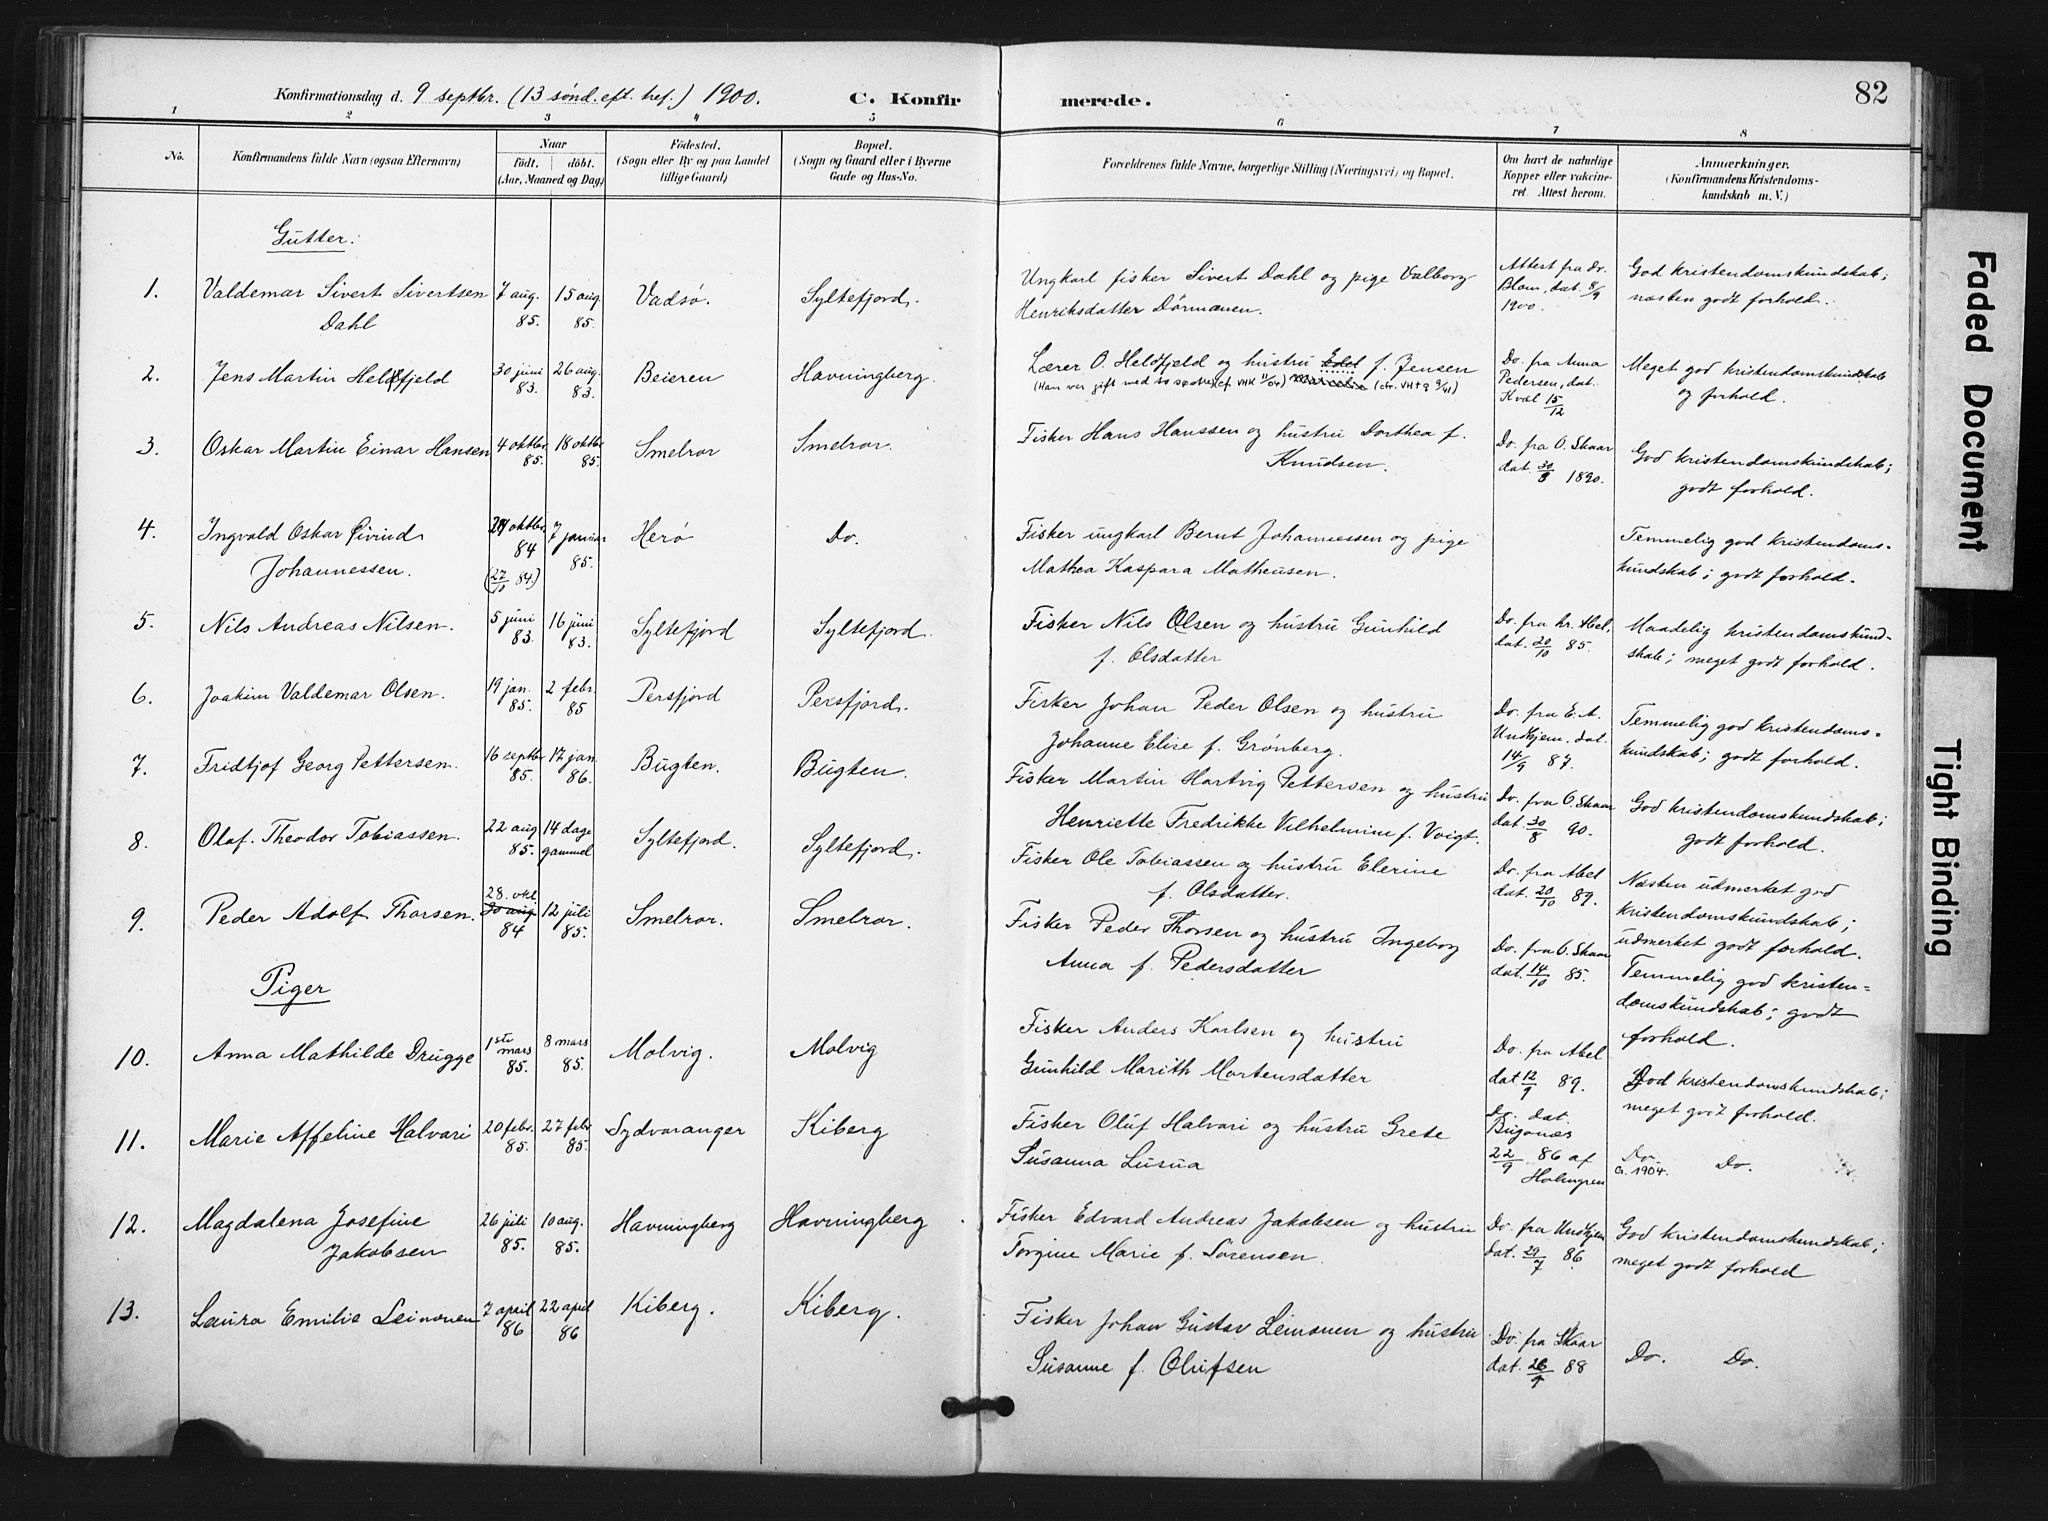 Konfirmationsdag d. 9 septbr. (13 sønd. eft. tref.) 1900.
C. Konfirmerede.
82
1 2 3 4 5 6 7 8
No.
Konfirmandens fulde Navn (ogsaa Efternavn)
Naar
født. døbt.
(Aar, Maaned og Dag)
Fødested.
(Sogn eller By og paa Landet
tillige Gaard)
Bopæl.
(Sogn og Gaard eller i Byerne
Gade og Hus-No.
Forældrenes fulde Navne, borgerlige Stilling (Næringsvei) og Bopæl.
Om havt de naturlige
Kopper eller vakcine-
ret. Attest herom.
Anmærkninger.
(Konfirmandens Kristendoms-
kundskab m. V.)
Gutter:
1. Valdemar Sivert Sivertsen
Dahl
7 aug.
85.
15 aug.
85.
Vadsø.
Syltefjord.
Ungkarl fisker Sivert Dahl og pige Valborg
Henriksdatter Dørmanen.
Attest fra dr.
Blom, dat. 8/9
1900.
God kristendomskundskab;
næsten godt forhold.
2. Jens Martin Heldfjeld
30 juni
83.
26 aug.
83.
Beieren
Havningberg.
Lærer O. Heldfjeld og hustru Edel f. Jensen
(Han var gift med to søstre, cf VHK 11/04) (cfr. VHT 9 9/41)
Do. fra Anna
Pedersen, dat.
Kvæl 15/12
Meget god kristendomskundskab
og forhold.
3. Oskar Martin Einar Hansen
4 oktbr
85.
18 oktbr
85.
Smelror
Smelror.
Fisker Hans Hanssen og hustru Dorthea f.
Knudsen.
Do. fra O. Skaar
dat. 30/8 1890.
God kristendomskundskab;
godt forhold.
4. Ingvald Oskar Eivind
Johannessen.
oktbr
84
(27/10 84.)
7 januar
85.
Herø
Do.
Fisker ungkarl Bernt Johannessen og pige
Mathea Kaspara Matheusen.
Temmelig god kristendoms-
kundskab; godt forhold.
5. Nils Andreas Nilsen.
5 juni
83.
16 juni
83.
Syltefjord
Syltefjord.
Fisker Nils Olsen og hustru Gunhild
f. Olsdatter
Do. fra hr. Abel,
dat. 20/10 85.
Maadelig kristendomskund-
skab; meget godt forhold.
6. Joakim Valdemar Olsen.
19 jan.
85.
2 febr.
85
Persfjord
Persfjord.
Fisker Johan Peder Olsen og hustru
Johanne Elise f. Grønberg.
Do. fra E. A.
Undhjem, dat.
14/9 87.
Temmelig god kristendoms-
kundskab; godt forhold.
7. Fridtjof Georg Pettersen.
16 septbr
85.
17 jan.
86.
Bugten.
Bugten.
Fisker Martin Hartvig Pettersen og hustru
Henriette Fredrikke Vilhelmine f. Voigt.
Do. fra O. Skaar
dat. 30/8 90.
God kristendomskundskab;
godt forhold.
8. Olaf. Theodor Tobiassen.
22 aug
85.
14 dage
gammel
Syltefjord.
Syltefjord.
Fisker Ole Tobiassen og hustru Elerine
f. Olsdatter.
Do. fra Abel
dat. 20/10 89.
Næsten udmerket god
kristendomskundskab;
udmerket godt forhold.
9. Peder Adolf Thorsen.
28. okt.
30 aug
84
12 juli
85.
Smelror.
Smelror.
Fisker Peder Thorsen og hustru Ingeborg
Anna f. Pedersdatter
Do. fra O. Skaar
dat. 14/10 85.
Temmelig god kristen-
domskundskab; godt
forhold.
Piger
10. Anna Mathilde Drugge
1ste
mars
85.
8 mars
85.
Molvig.
Molvig
Fisker Anders Karlsen og hustru
Gunhild Marith Mortensdatter
Do. fra Abel
dat 12/9 89.
God kristendomskundskab;
meget godt forhold.
11. Marie Affeline Halvari
20 febr.
85.
27 febr
85.
Sydvaranger
Kiberg
Fisker Oluf Halvari og hustru Grete
Susanna Lusua
Do. dat.
Bugønæs
22/9 86 af
Holmgren
Do. Do.
G. 1904.
12. Magdalena Josefine
Jakobsen
26 juli
85.
10 aug.
85.
Havningberg
Havningberg
Fisker Edvard Andreas Jakobsen og hustru
Torgine Marie f. Sørensen.
Do. fra Undhjem
dat. 29/7 86.
God kristendomskundskab;
meget godt forhold
13. Laura Emilie Leinonen
7 april
86
22 april
86
Kiberg.
Kiberg.
Fisker Johan Gustav Leinonen og hustru
Susanne f. Olufsen
Do. fra Skaar
dat. 26/9 88
Do. Do.
Faded Document
Tight Binding